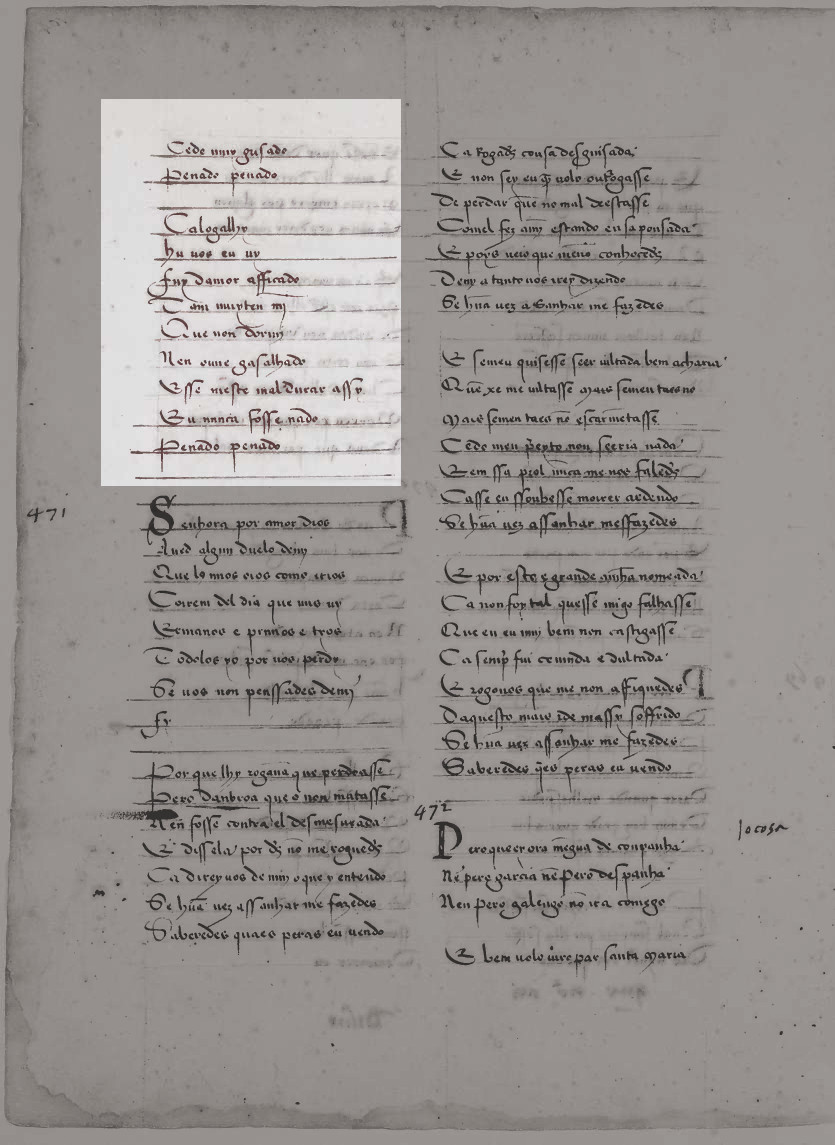 Cedo muy guisado
Penado penado
Calogalhy
hu uos eu uy
fuy damor afficado
Tam muyten mj
Que non dormj
Nen ouue gasalhado
Esse meste mal durar assy
Eu nunca fosse nado
Penado penado
471
Senhora por amor dios
Aued algun duelo demj
Que los mos oios como irios
Correm del dia que uus uy
Ermanos e primos e tyos
Todolos yo por uos perdy
Se uos non penssades demj
fy
Por que lhy rogaua que perdoasse
Pero Danbroa que o non matasse
Nen fosse contra el desmesurada
E dissela por ds nō me rogueds
Ca direyuos de min o que y entendo
Se hūa uez assanhar me fazedes
Saberedes quaes peras eu uendo
Ca rogads cousa desguisada
E non sey eu q̄ uolo outorgasse
De perdoar que no mal deestasse
Comel fez amj estando en sa pousada
E poys ueio que me nō conhoceds
Demj atanto uos irey dizendo
Se hūa uez a sanhar me fazedes
E semeu quisesse seer uiltada bem acharia
Quē xe me uiltasse mais semen taes no
Mais semen taes nō escarmetasse
Cedo meu preyto non seeria nada
E em ssa prol nūca me uos faleds
Casse eu ssoubesse morrer ardendo
Se hūa uez assanhar messfazedes
E por esto e grande a mīha nomeada
Ca non foy tal quesse migo falhasse
Que eu en mj bem non castigasse
Ca semp̄ fui temuda e dultada
E rogouos que me non affiquedes
Daquesto mais ide massy soffrido
Se hūa uez assanhar me fazedes
Saberedes q̄es peras eu uendo
472
Pero que ey ora mēgua de conpanha
Nē pero garcia nē pero despanha
Nen pero galengo nō ira comego
Jocosa
E bem uolo iuro par santa maria